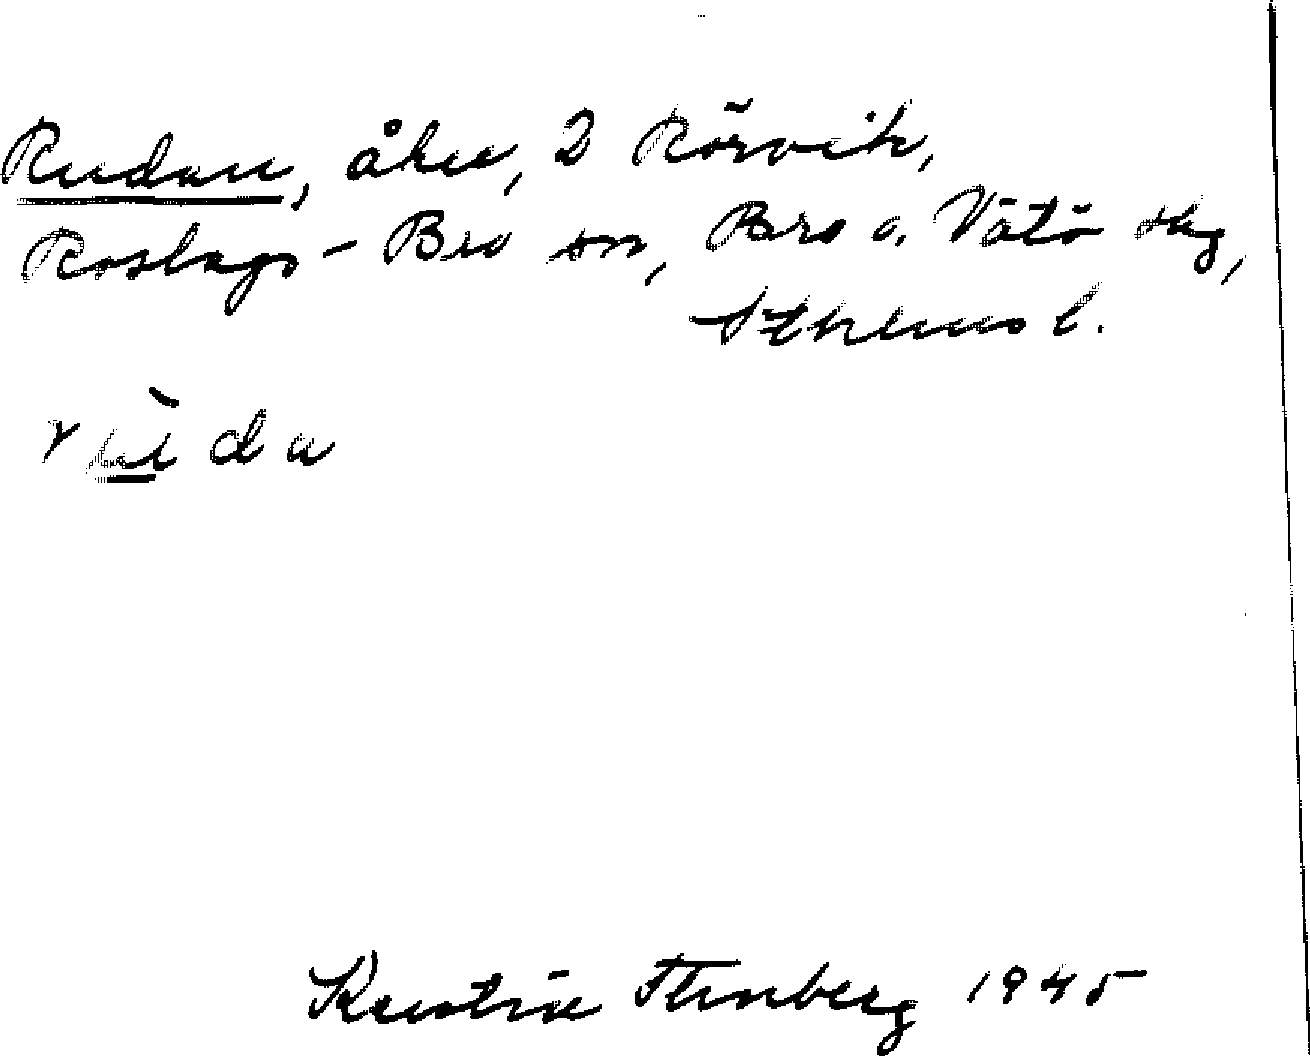 Rudan, åker, 2 Rörvik,
Roslags-Bro sn, Bro o. Vätö skg,
Sthlms l.
rùda
Kerstin Stenberg 1945